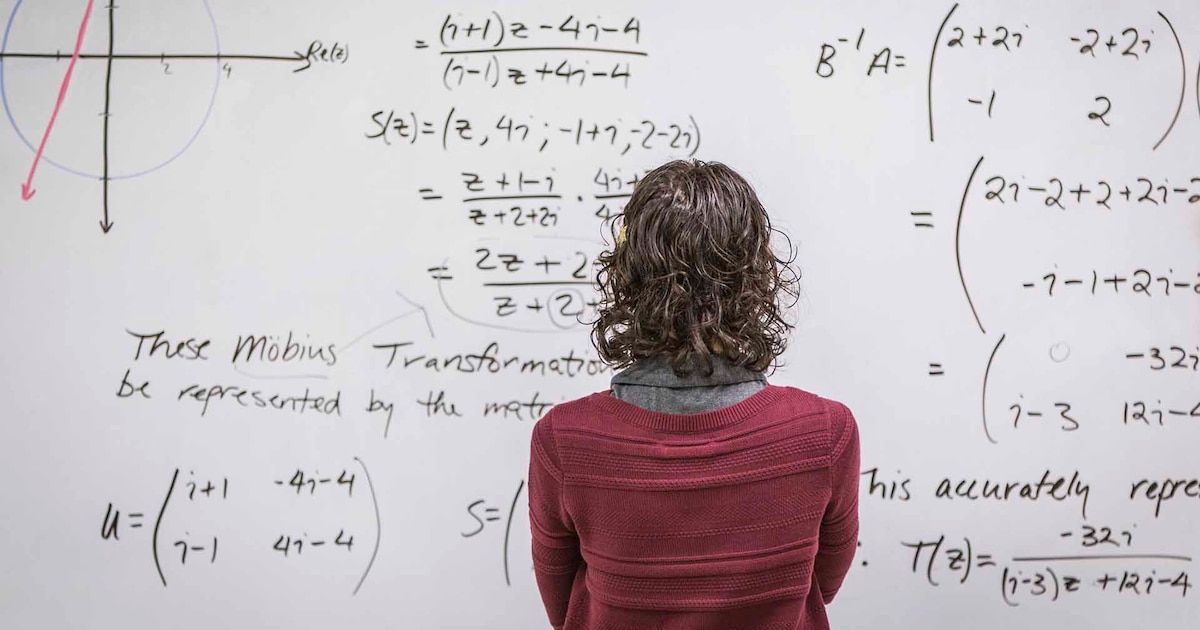 Re(z)
2 4
= (i+1)z-4i-4 / (i-1)z+4i-4
S(z)=(z, 4i; -1+i, -2-2i)
= z+1-i / z+2+2i · 4i+
= 2z+2 / z+2
These Möbius Transformatio
be represented by the matri
U= ( i+1 -4i-4
i-1 4i-4 )
S= (
B⁻¹A= ( 2+2i -2+2i
-1 2 ) (
= ( 2i-2+2+2i-2
-i-1+2i-2
= ( 0 -32i
i-3 12i-4
This accurately repre
: T(z)= -32i / (i-3)z+12i-4